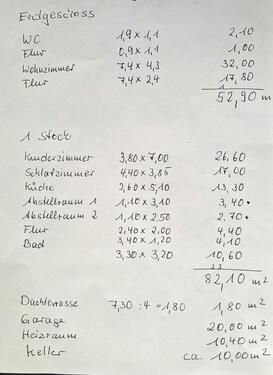 Erdgeschoss
WC 1,9 x 1,1 2,10
Flur 0,9 x 1,1 1,00
Wohnzimmer 7,4 x 4,3 32,00
Flur 7,4 x 2,4 17,80
52,90 m²
1 Stock
Kinderzimmer 3,80 x 7,00 26,60
Schlafzimmer 4,40 x 3,85 17,00
Küche 2,60 x 5,10 13,30
Abstellraum 1 1,10 x 3,10 3,40
Abstellraum 2 1,10 x 2,50 2,70
Flur 2,40 x 2,00 4,40
Bad 3,40 x 1,20 4,10
3,30 x 3,20 10,60
33
82,10 m²
Dachterrasse 7,30 : 4 = 1,80 1,80 m²
Garage 20,00 m²
Heizraum 10,40 m²
Keller ca. 10,00 m²